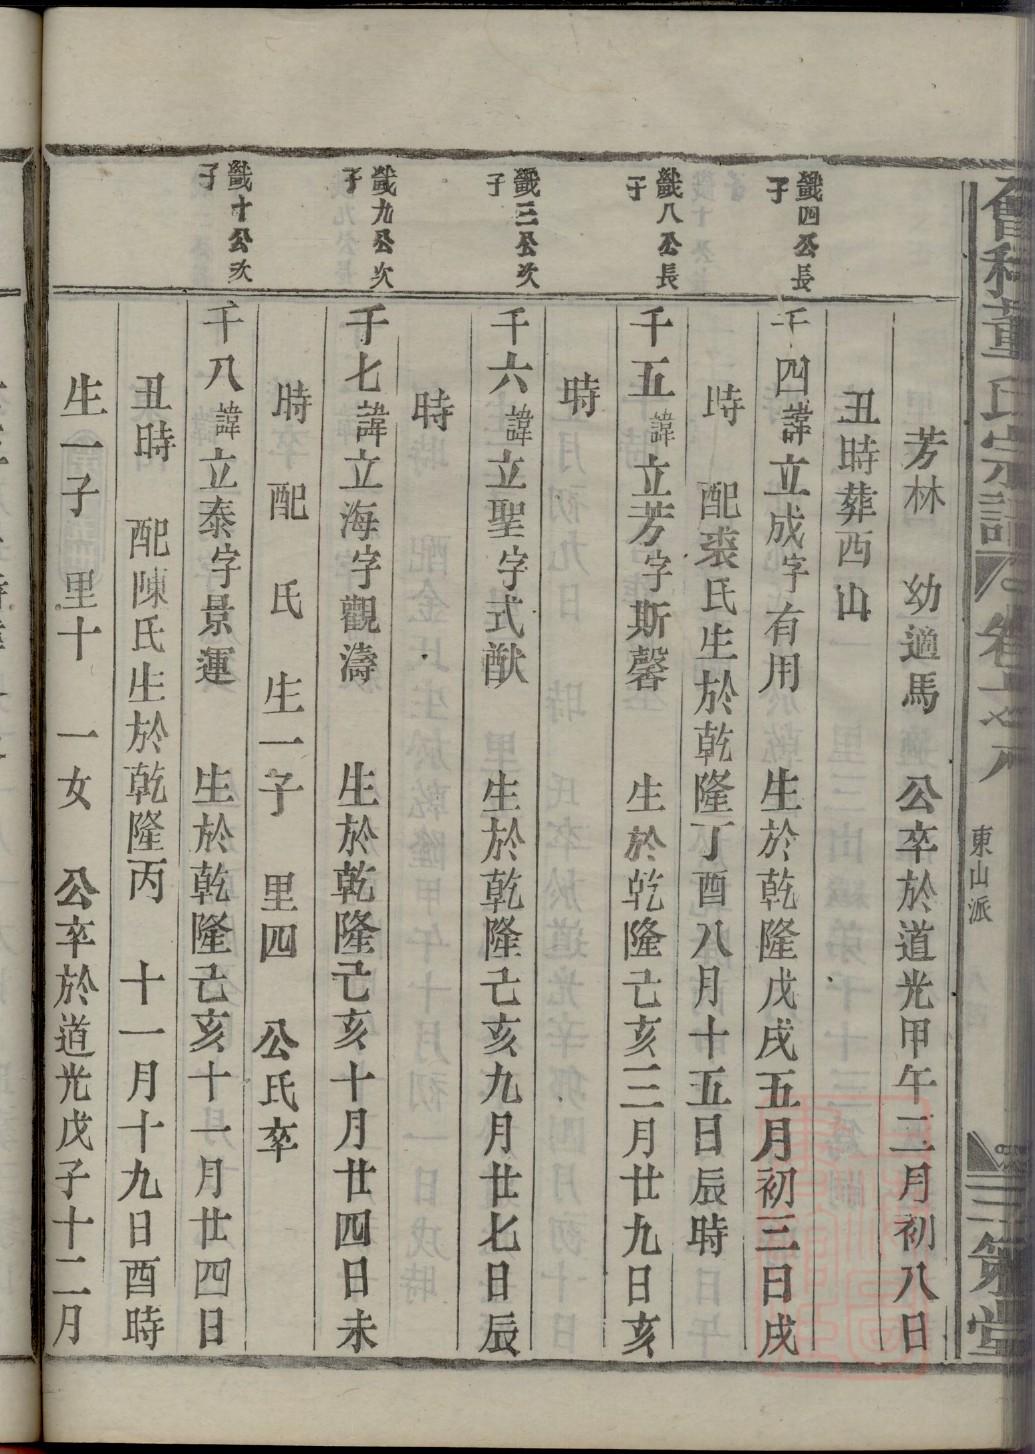 會稽董氏宗譜
東山派
三策堂
芳林 幼適馬 公卒於道光甲午三月初八日
丑時葬西山
齻四公長
子
千四諱立成字有用 生於乾隆戊戌五月初三日戌
時 配裘氏生於乾隆丁酉八月十五日辰時
齻八公長
子
千五諱立芳字斯馨 生於乾隆己亥三月廿九日亥
時
齻三公次
子
千六諱立聖字式猷 生於乾隆己亥九月廿七日辰
時
齻九公次
子
千七諱立海字觀濤 生於乾隆己亥十月廿四日未
時 配 氏 生一子 里四 公氏卒
齻十公次
子
千八諱立泰字景運 生於乾隆己亥十一月廿四日
丑時 配陳氏生於乾隆丙 十一月十九日酉時
生一子 里十 一女 公卒於道光戊子十二月